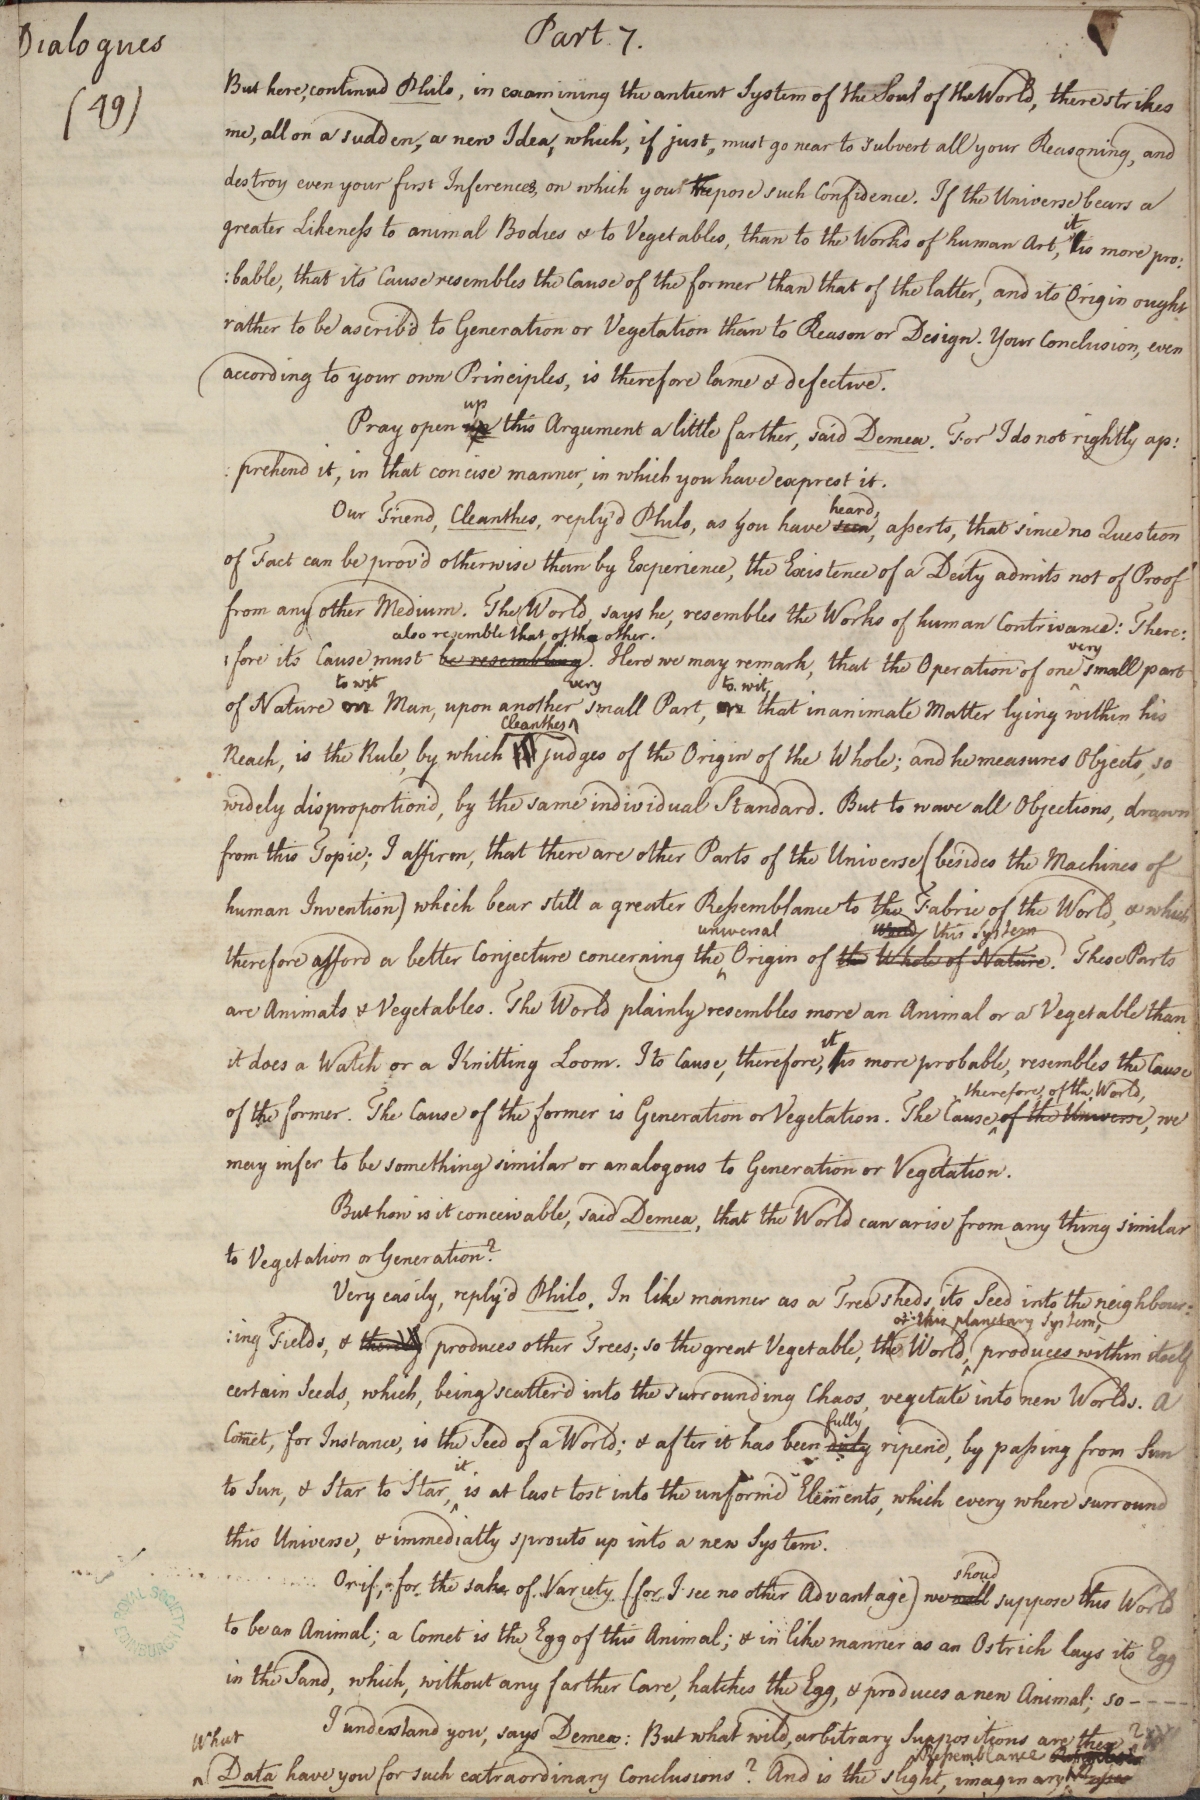 Dialogues
(49)
Part. 7.
But here, continued Philo, in examining the antient System of the Soul of the World, there strikes
me, all on a sudden, a new Idea, which, if just, must go near to subvert all your Reasoning, and
destroy even your first Inferences, on which you repose such Confidence. If the Universe bears a
greater Likeness to animal Bodies & to Vegetables, than to the Works of human Art, it is more pro:
:bable, that its Cause resembles the Cause of the former than that of the latter, and its Origin ought
rather to be ascrib'd to Generation or Vegetation than to Reason or Design. Your Conclusion, even
according to your own Principles, is therefore lame & defective.
Pray open up this Argument a little farther, said Demea. For I do not rightly ap:
:prehend it, in that concise manner, in which you have exprest it.
heard,
Our Friend, Cleanthes, reply'd Philo, as you have seen, asserts, that since no Question
of Fact can be prov'd otherwise than by Experience, the Existence of a Deity admits not of Proof
from any other Medium. The World, says he, resembles the Works of human Contrivance: There:
also resemble that of the other. very
:fore its Cause must be resembling. Here we may remark, that the Operation of one small part
to wit very to wit,
of Nature on Man, upon another small Part, that inanimate Matter lying within his
Cleanthes
Reach, is the Rule, by which judges of the Origin of the Whole; and he measures Objects, so
widely disproportion'd, by the same individual Standard. But to wave all Objections, drawn
from this Topic; I affirm, that there are other Parts of the Universe (besides the Machines of
human Invention) which bear still a greater Resemblance to the Fabric of the World, & which
universal this System
therefore afford a better Conjecture concerning the Origin of the Whole of Nature. These Parts
are Animals & Vegetables. The World plainly resembles more an Animal or a Vegetable than
it does a Watch or a Knitting Loom. Its Cause, therefore, it is more probable, resembles the Cause
therefore, of the World,
of the former. The Cause of the former is Generation or Vegetation. The Cause of the Universe, we
may infer to be something similar or analogous to Generation or Vegetation.
But how is it conceivable, said Demea, that the World can arise from any thing similar
to Vegetation or Generation?
Very easily, reply'd Philo. In like manner as a Tree sheds its Seed into the neighbour:
or this planetary System,
:ing Fields, & produces other Trees; so the great Vegetable, the World, produces within itself
certain Seeds, which, being scatter'd into the surrounding Chaos, vegetate into new Worlds. A
fully
Comet, for Instance, is the Seed of a World; & after it has been duly ripen'd, by passing from Sun
it
to Sun, & Star to Star, is at last tost into the unform'd Elements, which every where surround
this Universe, & immediatly sprouts up into a new System.
shoud
Or if, for the sake of Variety (for I see no other Advantage) we suppose this World
to be an Animal; a Comet is the Egg of this Animal; & in like manner as an Ostrich lays its Egg
in the Sand, which, without any farther Care, hatches the Egg, & produces a new Animal; so ----
I understand you, says Demea: But what wild, arbitrary Suppositions are these?
What Resemblance
Data have you for such extraordinary Conclusions? And is the slight, imaginary
ROYAL SOCIETY EDINBURGH